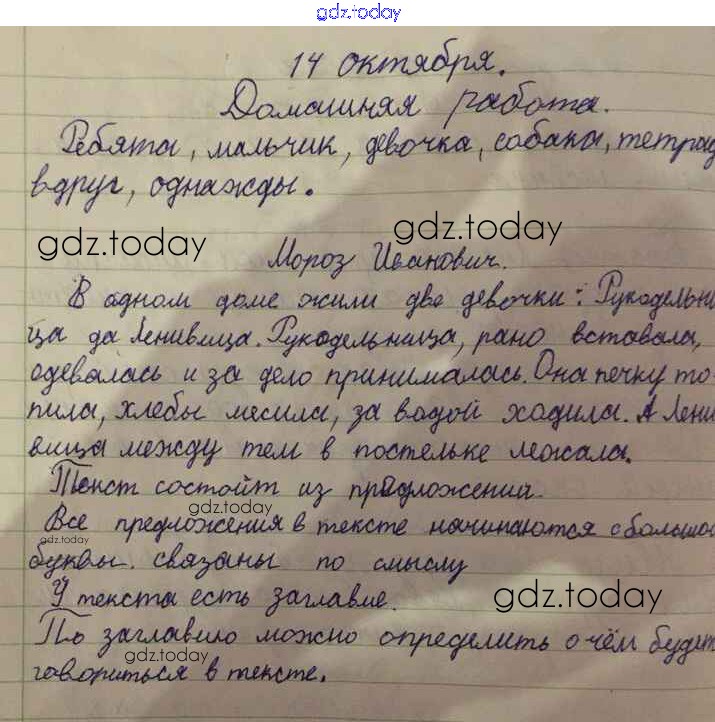 gdz.today
14 октября.
Домашняя работа.
Ребята, мальчик, девочка, собака, тетрад
вдруг, однажды.
gdz.today
gdz.today
Мороз Иванович.
В одном доме жили две девочки: Рукодельни
ца да Ленивица. Рукодельница, рано вставала,
одевалась и за дело принималась. Она печку то-
пила, хлебы месила, за водой ходила. А Лени
вица между тем в постельке лежала.
Текст состоит из предложений.
gdz.today
Все предложения в тексте начинаются с большой
gdz.today
буквы. связаны по смыслу
У текста есть заглавие.
gdz.today
По заглавию можно определить о чём будет
gdz.today
говориться в тексте.